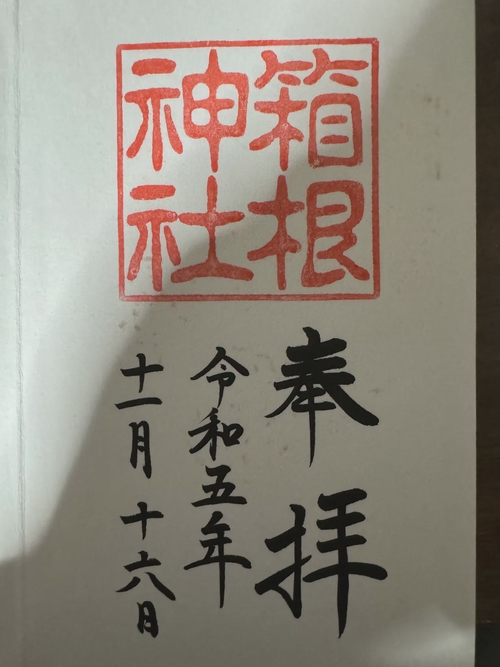 箱根
神社
奉拝
令和五年
十一月十六日